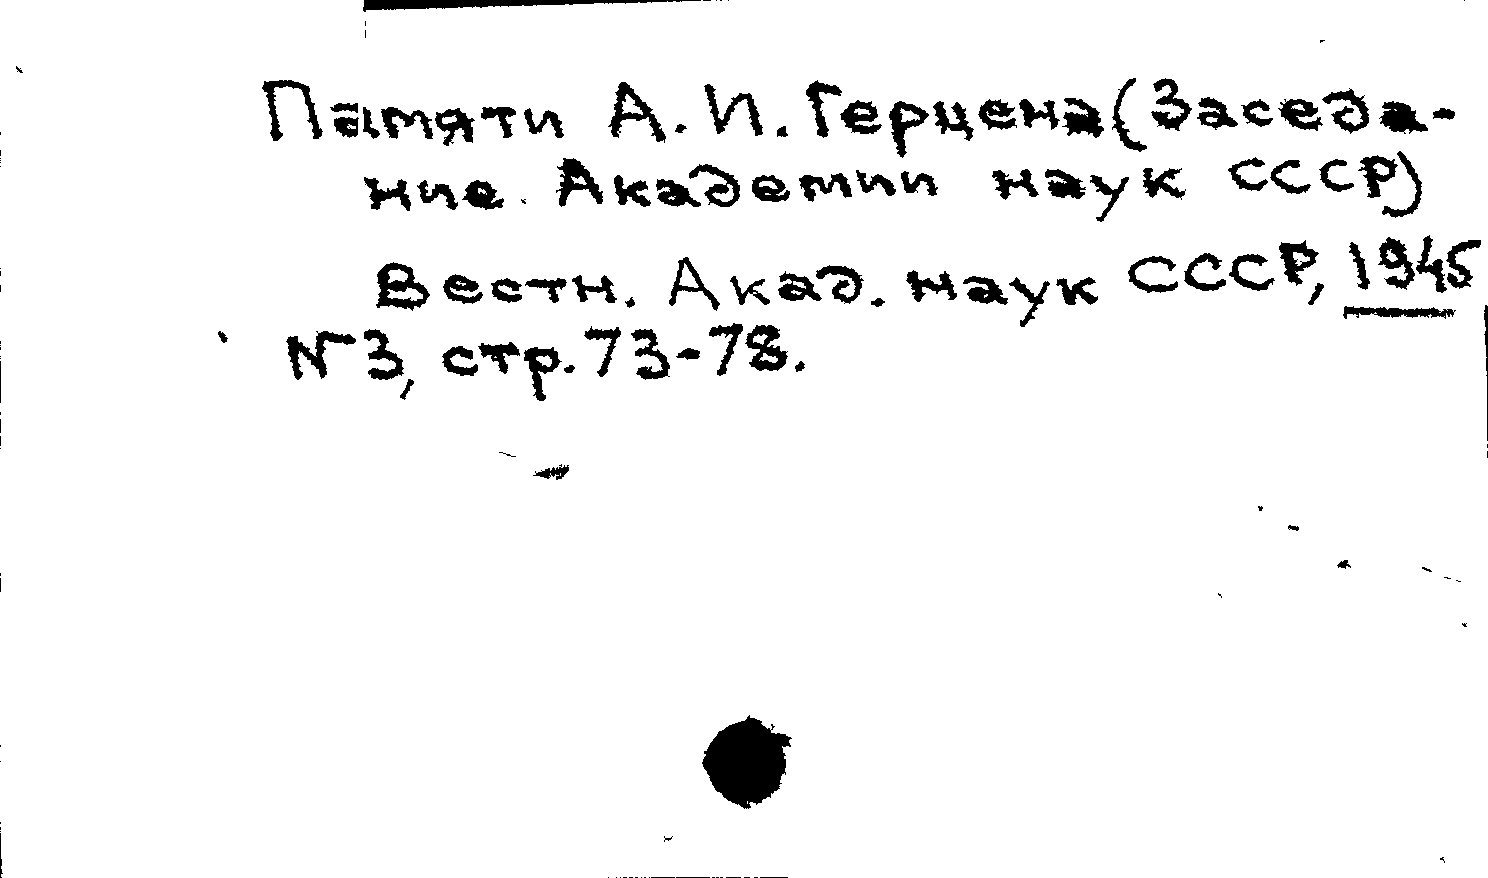 Памяти А. И. Герцена (Заседа-
ние Академии наук СССР)
Вестн. Акад. наук СССР, 1945
№ 3, стр. 73-78.